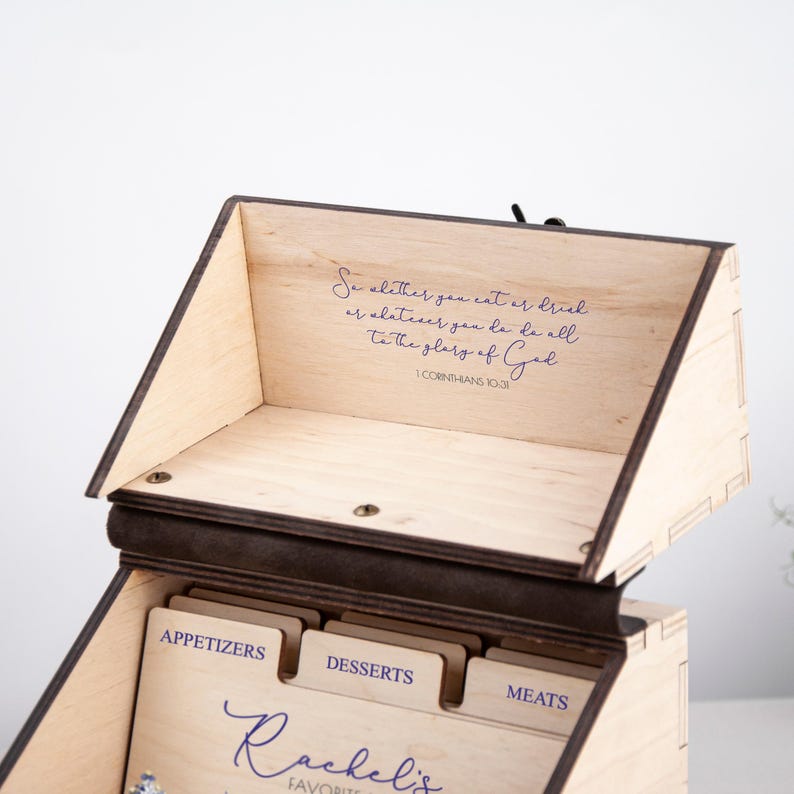 So whether you eat or drink
or whatever you do do all
to the glory of God
1 CORINTHIANS 10:31
APPETIZERS
DESSERTS
MEATS
Rachel's
FAVORITE